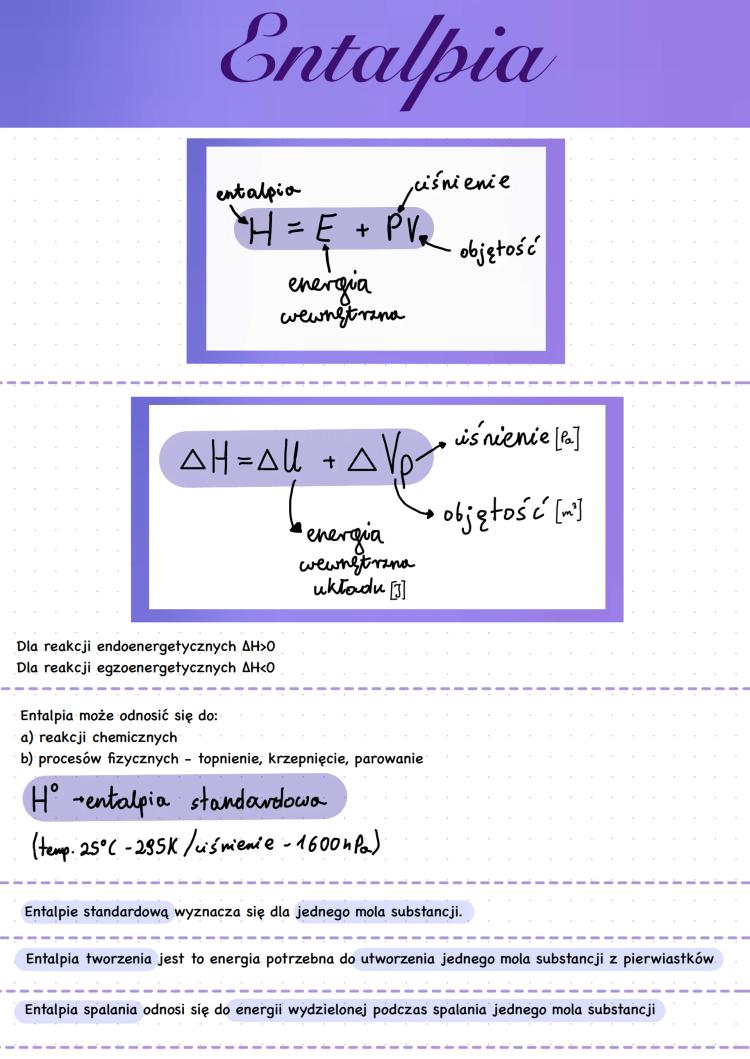 Entalpia
entalpia
ciśnienie
H = E + PV
objętość
energia
wewnętrzna
ΔH = ΔU + ΔVp
ciśnienie [Pa]
objętość [m³]
energia
wewnętrzna
układu [J]
Dla reakcji endoenergetycznych ΔH>0
Dla reakcji egzoenergetycznych ΔH<0
Entalpia może odnosić się do:
a) reakcji chemicznych
b) procesów fizycznych - topnienie, krzepnięcie, parowanie
H° → entalpia standardowa
(temp. 25°C - 295K / ciśnienie - 1600hPa)
Entalpie standardową wyznacza się dla jednego mola substancji.
Entalpia tworzenia jest to energia potrzebna do utworzenia jednego mola substancji z pierwiastków
Entalpia spalania odnosi się do energii wydzielonej podczas spalania jednego mola substancji